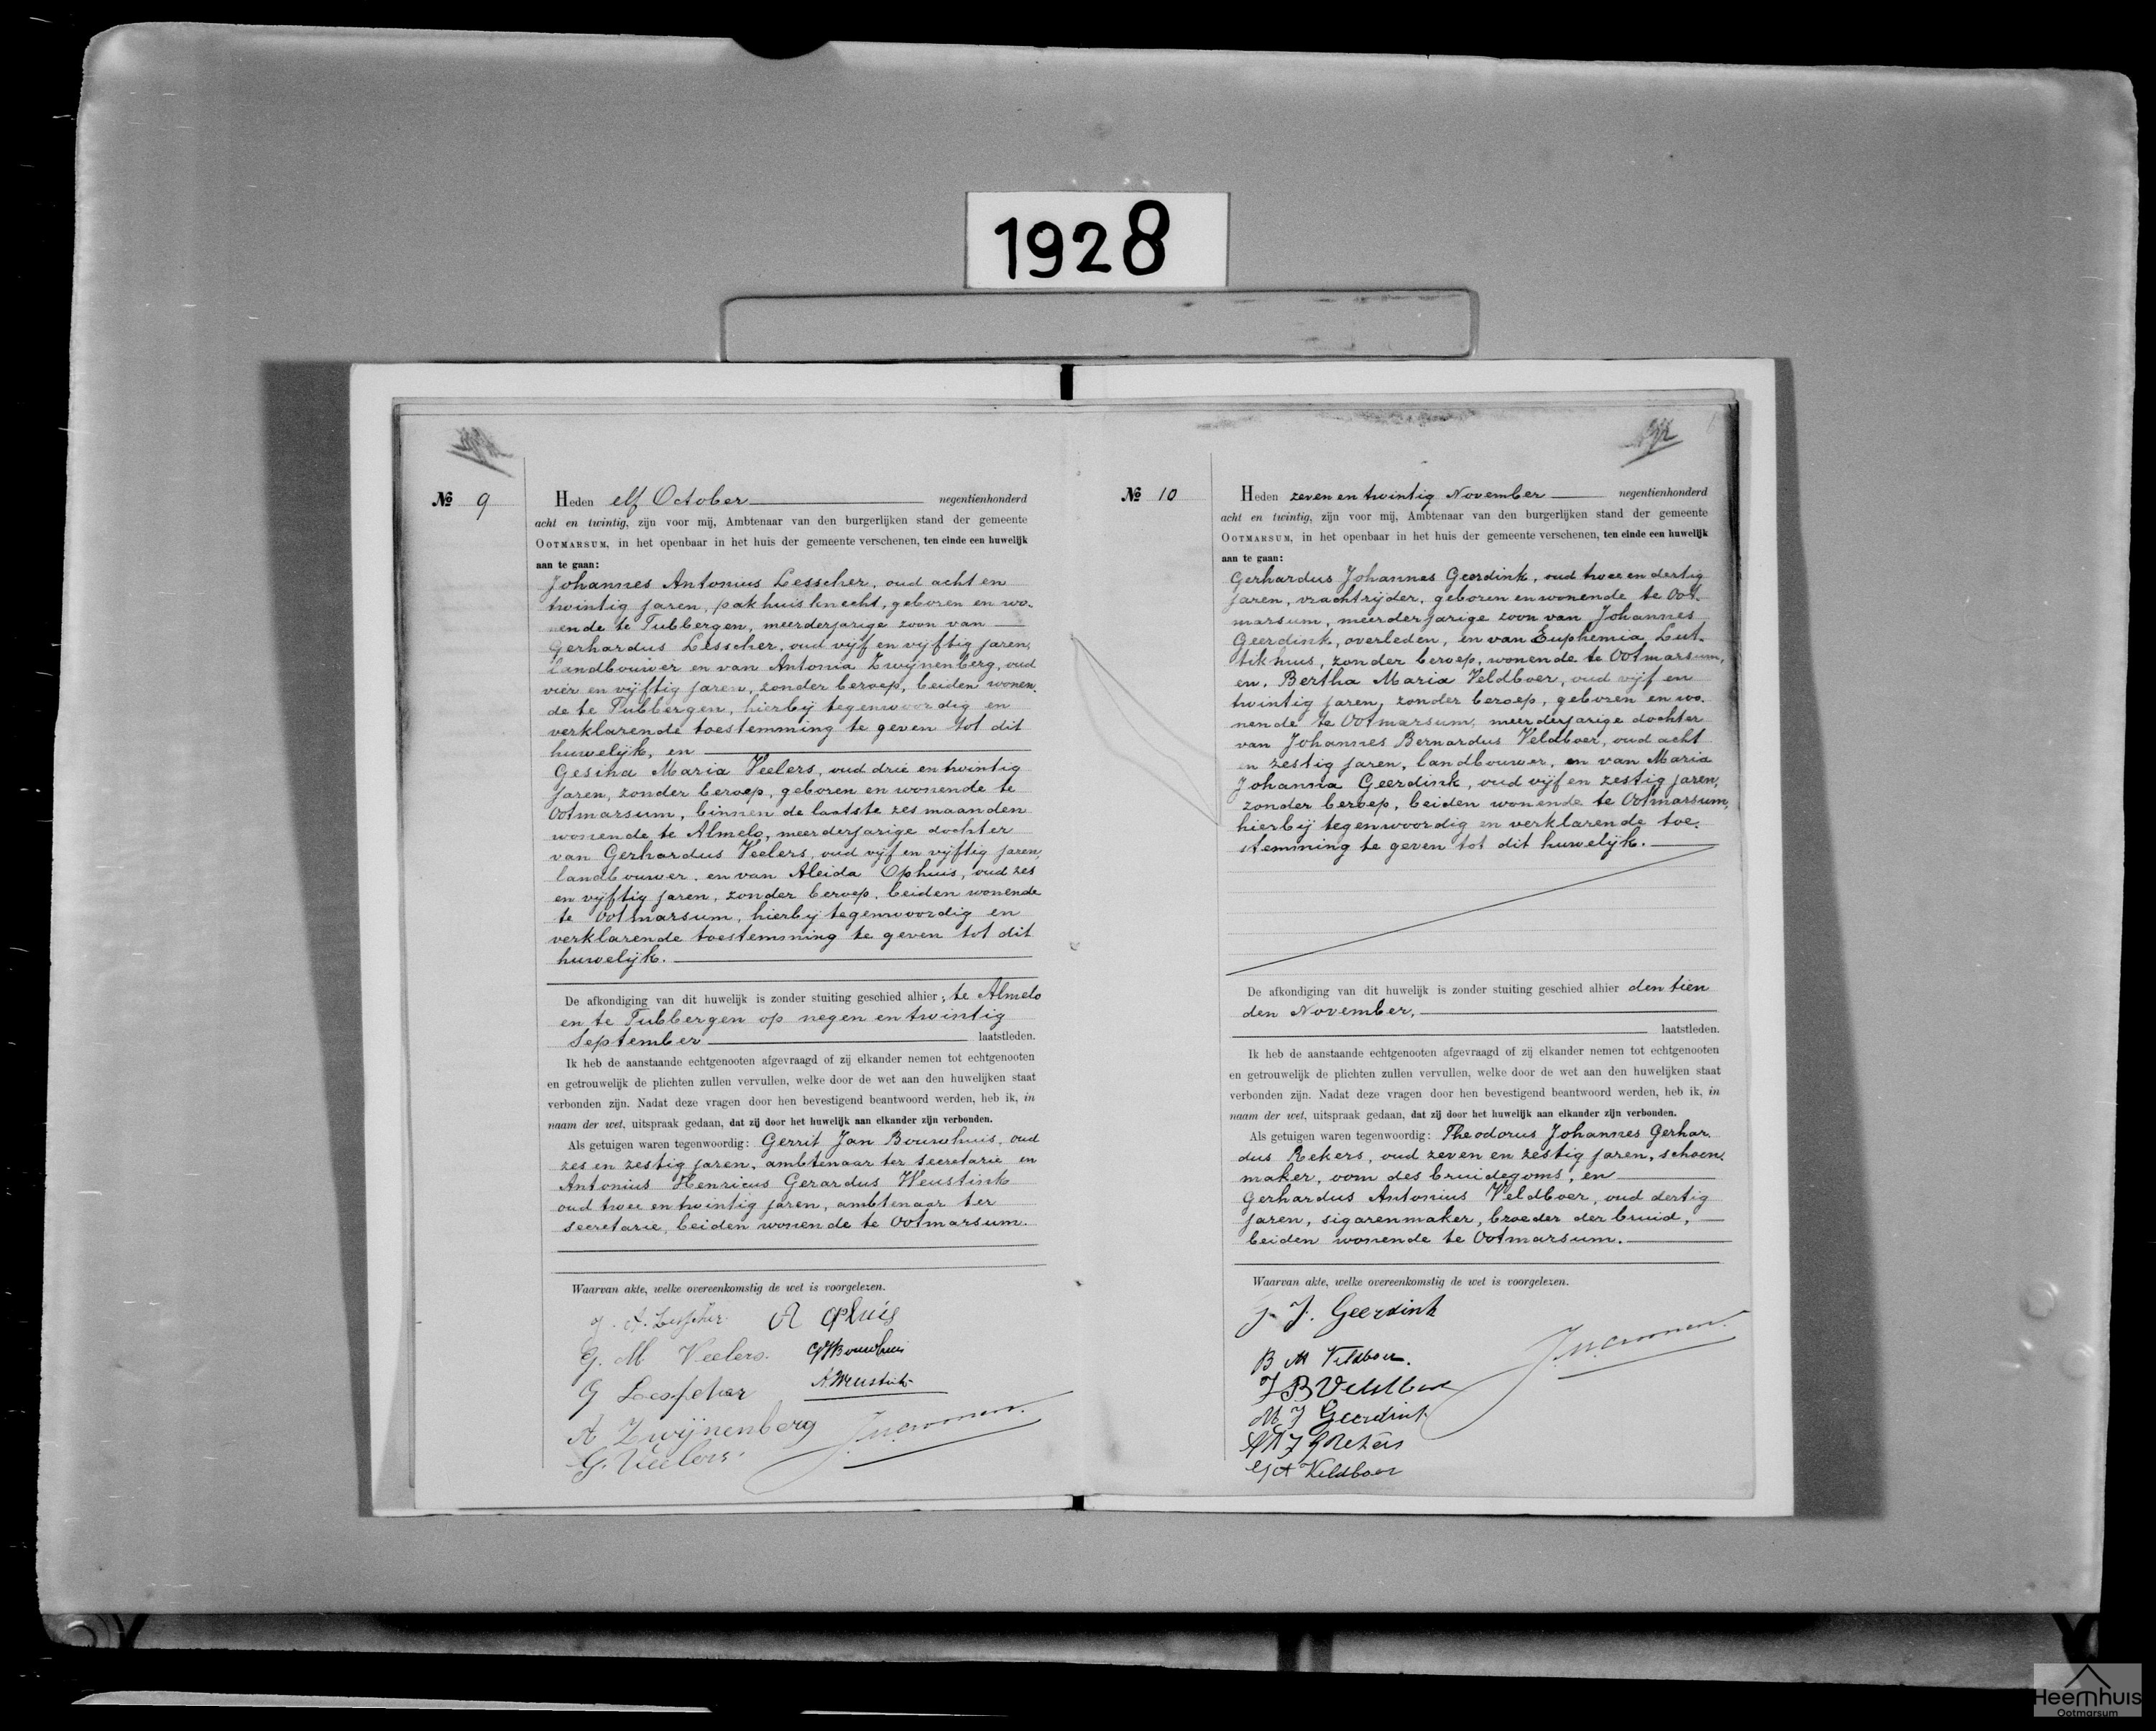 1928
№ 9
Heden elf October negentienhonderd
acht en twintig, zijn voor mij, Ambtenaar van den burgerlijken stand der gemeente
OOTMARSUM, in het openbaar in het huis der gemeente verschenen, ten einde een huwelijk
aan te gaan:
Johannes Antonius Lesscher, oud acht en
twintig jaren, pakhuisknecht, geboren en wo-
nende te Tubbergen, meerderjarige zoon van
Gerhardus Lesscher, oud vijf en vijftig jaren,
landbouwer en van Antonia Zwijnenberg, oud
vier en vijftig jaren, zonder beroep, beiden wonen-
de te Tubbergen, hierbij tegenwoordig en
verklarende toestemming te geven tot dit
huwelijk, en
Gesina Maria Veelers, oud drie en twintig
jaren, zonder beroep, geboren en wonende te
Ootmarsum, binnen de laatste zes maanden
wonende te Almelo, meerderjarige dochter
van Gerhardus Veelers, oud vijf en vijftig jaren,
landbouwer, en van Aleida Ophuis, oud zes
en vijftig jaren, zonder beroep, beiden wonende
te Ootmarsum, hierbij tegenwoordig en
verklarende toestemming te geven tot dit
huwelijk.
De afkondiging van dit huwelijk is zonder stuiting geschied alhier, te Almelo
en te Tubbergen op negen en twintig
September laatstleden.
Ik heb de aanstaande echtgenooten afgevraagd of zij elkander nemen tot echtgenooten
en getrouwelijk de plichten zullen vervullen, welke door de wet aan den huwelijken staat
verbonden zijn. Nadat deze vragen door hen bevestigend beantwoord werden, heb ik, in
naam der wet, uitspraak gedaan, dat zij door het huwelijk aan elkander zijn verbonden.
Als getuigen waren tegenwoordig: Gerrit Jan Bouwhuis, oud
zes en zestig jaren, ambtenaar ter secretarie en
Antonius Henricus Gerardus Weustink
oud twee en twintig jaren, ambtenaar ter
secretarie, beiden wonende te Ootmarsum.
Waarvan akte, welke overeenkomstig de wet is voorgelezen.
J. A. Lesscher A Ophuis
G. M. Veelers. GJBouwhuis
G Lesscher A Weustink
A Zwijnenberg
G. Veelers
№ 10
Heden zeven en twintig November negentienhonderd
acht en twintig, zijn voor mij, Ambtenaar van den burgerlijken stand der gemeente
OOTMARSUM, in het openbaar in het huis der gemeente verschenen, ten einde een huwelijk
aan te gaan:
Gerhardus Johannes Geerdink, oud twee en dertig
jaren, vrachtrijder, geboren en wonende te Oot-
marsum, meerderjarige zoon van Johannes
Geerdink, overleden, en van Euphemia Lut-
tikhuis, zonder beroep, wonende te Ootmarsum,
en, Bertha Maria Veldboer, oud vijf en
twintig jaren, zonder beroep, geboren en wo-
nende te Ootmarsum, meerderjarige dochter
van Johannes Bernardus Veldboer, oud acht
en zestig jaren, landbouwer, en van Maria
Johanna Geerdink, oud vijf en zestig jaren,
zonder beroep, beiden wonende te Ootmarsum,
hierbij tegenwoordig en verklarende toe-
stemming te geven tot dit huwelijk.
De afkondiging van dit huwelijk is zonder stuiting geschied alhier den tien
den November,
laatstleden.
Ik heb de aanstaande echtgenooten afgevraagd of zij elkander nemen tot echtgenooten
en getrouwelijk de plichten zullen vervullen, welke door de wet aan den huwelijken staat
verbonden zijn. Nadat deze vragen door hen bevestigend beantwoord werden, heb ik, in
naam der wet, uitspraak gedaan, dat zij door het huwelijk aan elkander zijn verbonden.
Als getuigen waren tegenwoordig: Theodorus Johannes Gerhar
dus Rekers, oud zeven en zestig jaren, schoen-
maker, oom des bruidegoms, en
Gerhardus Antonius Veldboer, oud dertig
jaren, sigarenmaker, broeder der bruid,
beiden wonende te Ootmarsum.
Waarvan akte, welke overeenkomstig de wet is voorgelezen.
G. J. Geerdink
B M Veldboer.
J B Veldboer
M J Geerdink
Rekers
G A Veldboer
Heemhuis
Ootmarsum